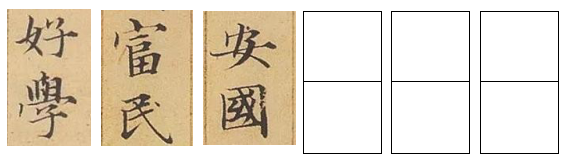 好學
富民
安國